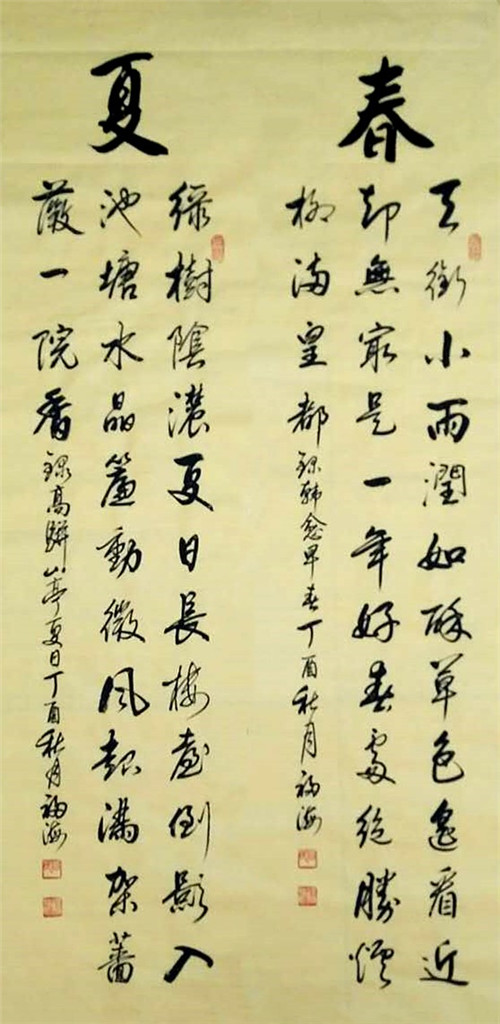 春
天街小雨潤如酥草色遙看近
却無最是一年好春處絕勝煙
柳滿皇都 錄韓愈早春丁酉秋月福海
夏
綠樹陰濃夏日長樓臺倒影入
池塘水晶簾動微風起滿架薔
薇一院香 錄高駢山亭夏日丁酉秋月福海